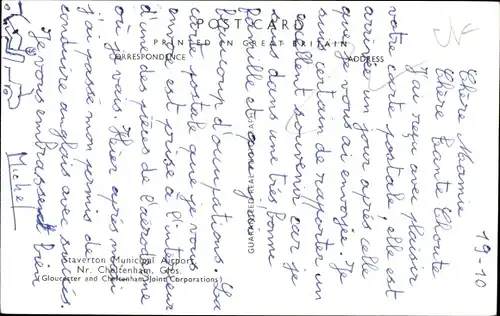 POST CARD
PRINTED IN GREAT BRITAIN
CORRESPONDENCE
ADDRESS
19-10
Chère Mamie
Chère Tante Choute
J'ai reçu avec plaisir
votre carte postale, elle est
arrivée un jour après celle
que je vous ai envoyée. Je
suis certain de rapporter un
excellent souvenir car je
suis dans une très bonne
famille et
beaucoup d'occupations. La
carte postale que je vous
envoie est prise à l'intérieur
d'une des pièces de l'aérodrome
où je vais. Hier après midi
j'ai passé mon permis de
conduire anglais avec succès.
Je vous embrasse bien
Michel
Staverton Municipal Airport
Nr. Cheltenham, Glos.
(Gloucester and Cheltenham Joint Corporations)